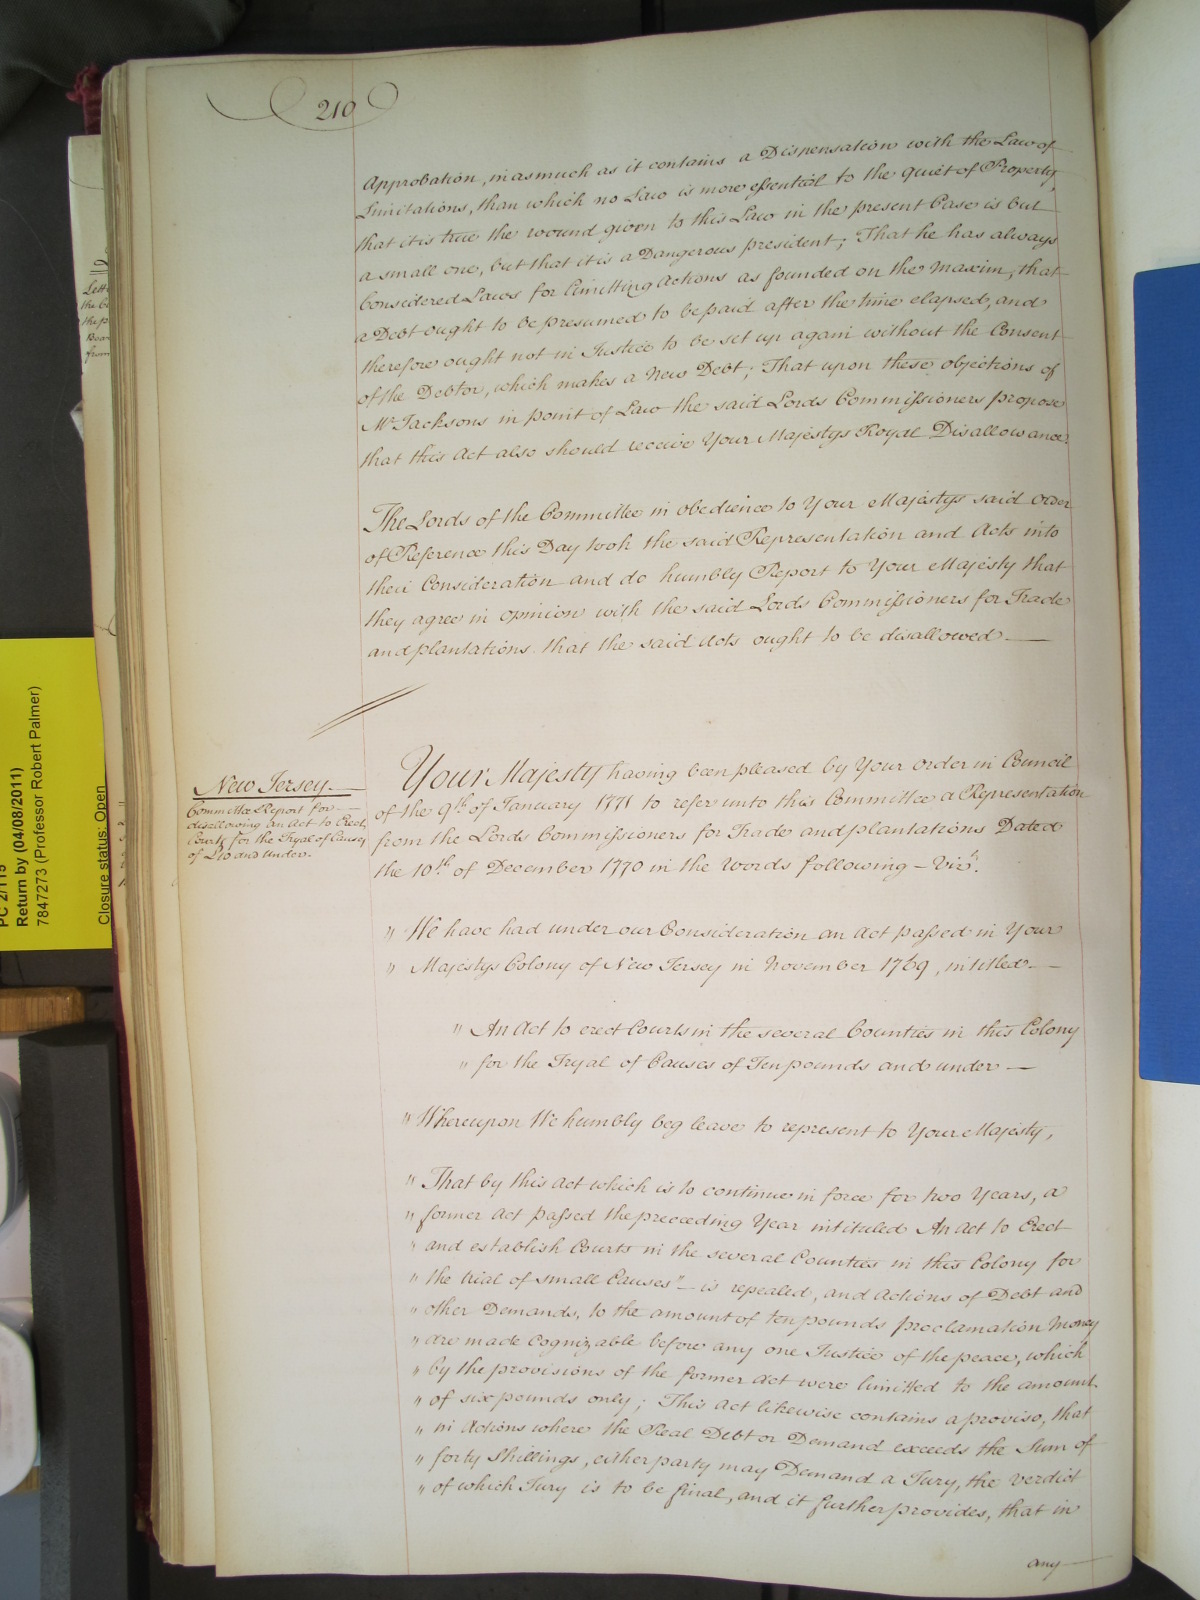 210
Approbation, in as much as it contains a Dispensation with the Law of
Limitations, than which no Law is more essential to the quiet of Property,
that it is true the wound given to this Law in the present Case is but
a small one, but that it is a Dangerous president; That he has always
Considered Laws for limitting Actions as founded on the Maxim, that
a Debt ought to be presumed to be paid after the time elapsed, and
therefore ought not in Justice to be set up again without the Consent
of the Debtor, which makes a New Debt; That upon these objections of
Mr Jacksons in point of Law the said Lords Commissioners propose
that this Act also should receive Your Majestys Royal Disallowance
The Lords of the Committee in obedience to Your Majestys said Order
of Reference this Day took the said Representation and Acts into
their Consideration and do humbly Report to Your Majesty that
they agree in opinion with the said Lords Commissioners for Trade
and plantations that the said Acts ought to be disallowed —
New Jersey —
Committee Report for —
disallowing an Act to Erect
Courts for the Tryal of Causes
of £10 and under.
Your Majesty having been pleased by Your Order in Council
of the 9th of January 1771 to refer unto this Committee a Representation
from the Lords Commissioners for Trade and plantations Dated
the 10th of December 1770 in the Words following – Vizt.
" We have had under our Consideration an Act passed in Your
" Majestys Colony of New Jersey in November 1769, intitled —
" An Act to erect Courts in the several Counties in this Colony
" for the Tryal of Causes of Ten pounds and under —
" Whereupon We humbly beg leave to represent to Your Majesty,
" That by this Act which is to continue in force for two Years, a
" former Act passed the preceeding Year intituled An Act to Erect
" and establish Courts in the several Counties in this Colony for
" the trial of small Causes" – is repealed, and Actions of Debt and
" other Demands, to the amount of ten pounds proclamation Money
" are made Cognizable before any one Justice of the peace, which
" by the provisions of the former Act were limitted to the amount
" of six pounds only; This Act likewise contains a proviso, that
" in Actions where the Real Debt or Demand exceeds the Sum of
" forty Shillings, either party may Demand a Jury, the verdict
" of which Jury is to be final, and it further provides, that in
any —
PC 2/115
Return by (04/08/2011)
7847273 (Professor Robert Palmer)
Closure status: Open